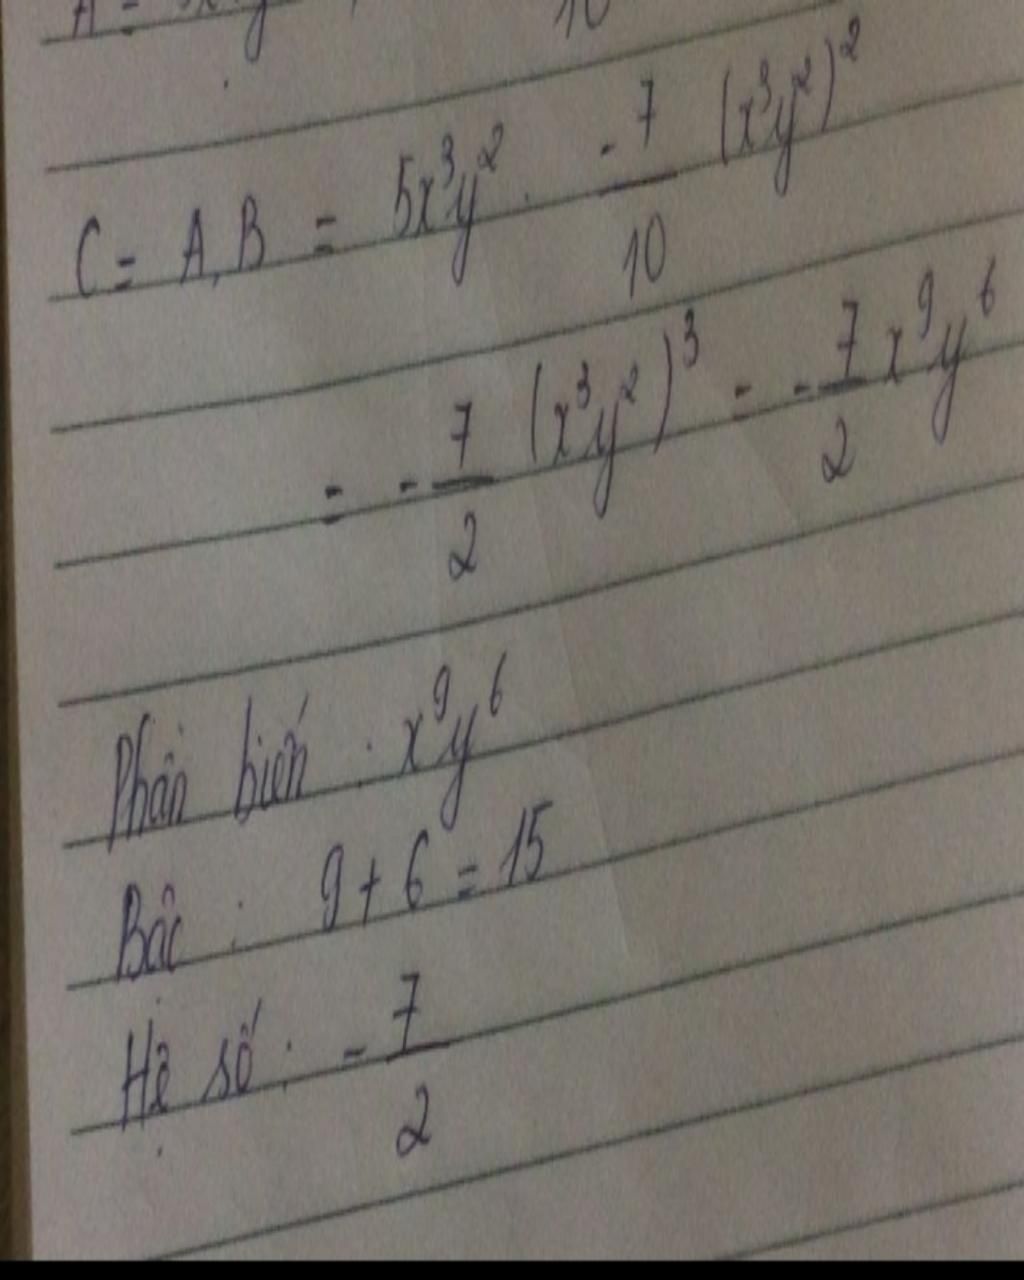 C = A.B = 5x³y² . -7/10 (x³y²)²
= -7/2 (x³y²)³ = -7/2 x⁹y⁶
Phần biến : x⁹y⁶
Bậc : 9 + 6 = 15
Hệ số : -7/2